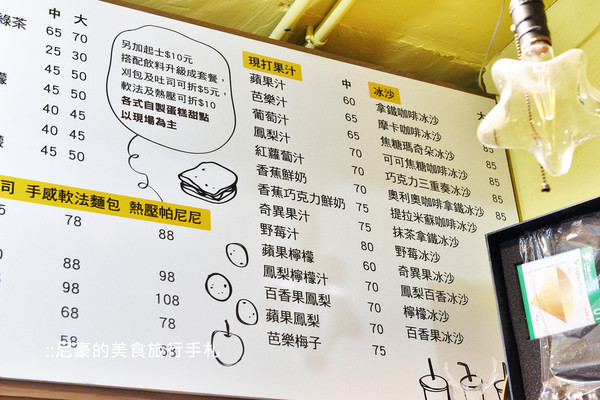 中 大
綠茶 65 70
25 30
檬 45 50
45 50
40 45
40 45
檬 45 50
另加起士$10元
搭配飲料升級成套餐，
刈包及吐司可折$5元，
軟法及熱壓可折$10
各式自製蛋糕甜點
以現場為主
司 手感軟法麵包 熱壓帕尼尼
78 88
88 98
98 108
68 78
58 68
現打果汁 中
蘋果汁 60
芭樂汁 65
葡萄汁 65
鳳梨汁 65
紅蘿蔔汁 70
香蕉鮮奶 70
香蕉巧克力鮮奶 75
奇異果汁 70
野莓汁 80
蘋果檸檬 60
鳳梨檸檬汁 70
百香果鳳梨 70
蘋果鳳梨 70
芭樂梅子 75
冰沙 大
拿鐵咖啡冰沙 85
摩卡咖啡冰沙 85
焦糖瑪奇朵冰沙 85
可可焦糖咖啡冰沙 85
巧克力三重奏冰沙 85
奧利奧咖啡拿鐵冰沙 85
提拉米蘇咖啡冰沙
抹茶拿鐵冰沙
野莓冰沙
奇異果冰沙
鳳梨百香冰沙
檸檬冰沙
百香果冰沙
::尼豪的美食旅行手札